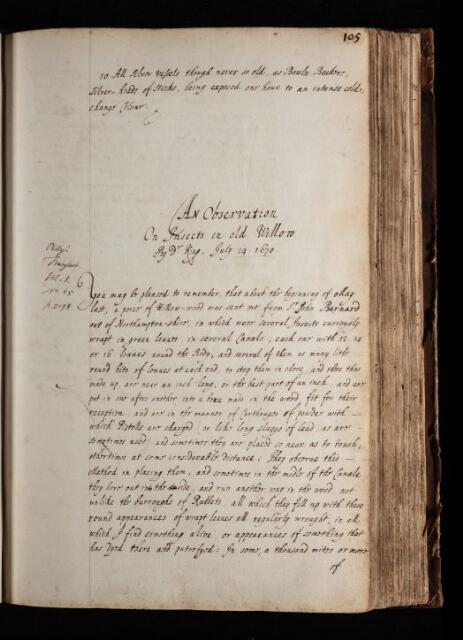 105
10. All silver vessels though never so old, as Bowls, Beakers,
Silver-heads of Sticks, being exposed one hour to an intense cold,
change Colour.
An Observation
On Insects in old Willow
By Dr King. July 14: 1670.
Philos:
Transact.
Vol. 5.
No. 65
p. 2098
You may be pleased to remember, that about the beginning of May
last, a piece of Willow-wood was sent me from Sr. John Barnard
out of Northampton-shire, in which were several Insects curiously
wrapt in green leaves, in several Canals, each one with 12. 14
or 16 leaves round the Body, and several of them as many little
round bits of leaves at each end, to stop them in close, and thus they
made up, are near an inch long, or the best part of an inch, and are
put in one after another into a bore made in the wood fit for their
reception, and are in the manner of Cartrages of powder with
which Pistols are charged (or like long sluggs of lead as are
sometimes used) and sometimes they are placed so near as to touch,
othertimes at some considerable distance: They observe this
Method in placing them, and sometimes in the midle of the Canale
they bore out in the side, and run another way in the wood not
unlike the burroughs of Rabbets, all which they fill up with these
round appearances of wrapt leaves all regularly wrought, in all
which I find something alive, or appearances of something that
has dyed there and putrefyed: In some, a thousand mites or more
of